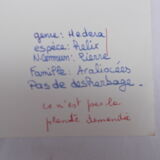 genre: Hedera
espèce: Helix
N.Commun: Pierre
Famille: Araliacées
Pas de desherbage.
ce n'est pas la
plante demandée